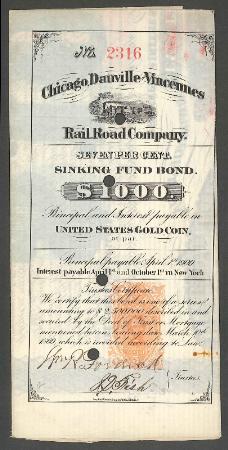 No. 2316
Chicago, Danville & Vincennes
Rail Road Company.
SEVEN PER CENT.
SINKING FUND BOND.
$1000.
Principal and Interest payable in
UNITED STATES GOLD COIN,
at par.
Principal payable April 1st 1909
Interest payable April 1st and October 1st in New York
Trustees Certificate.
We certify that this bond is one of a series
amounting to $2,500,000 described in and
secured by the Deed of Trust or Mortgage
mentioned herein bearing date March 10th
1869, which is recorded according to Law.
Wm R.
J. D. Fish
Trustees.